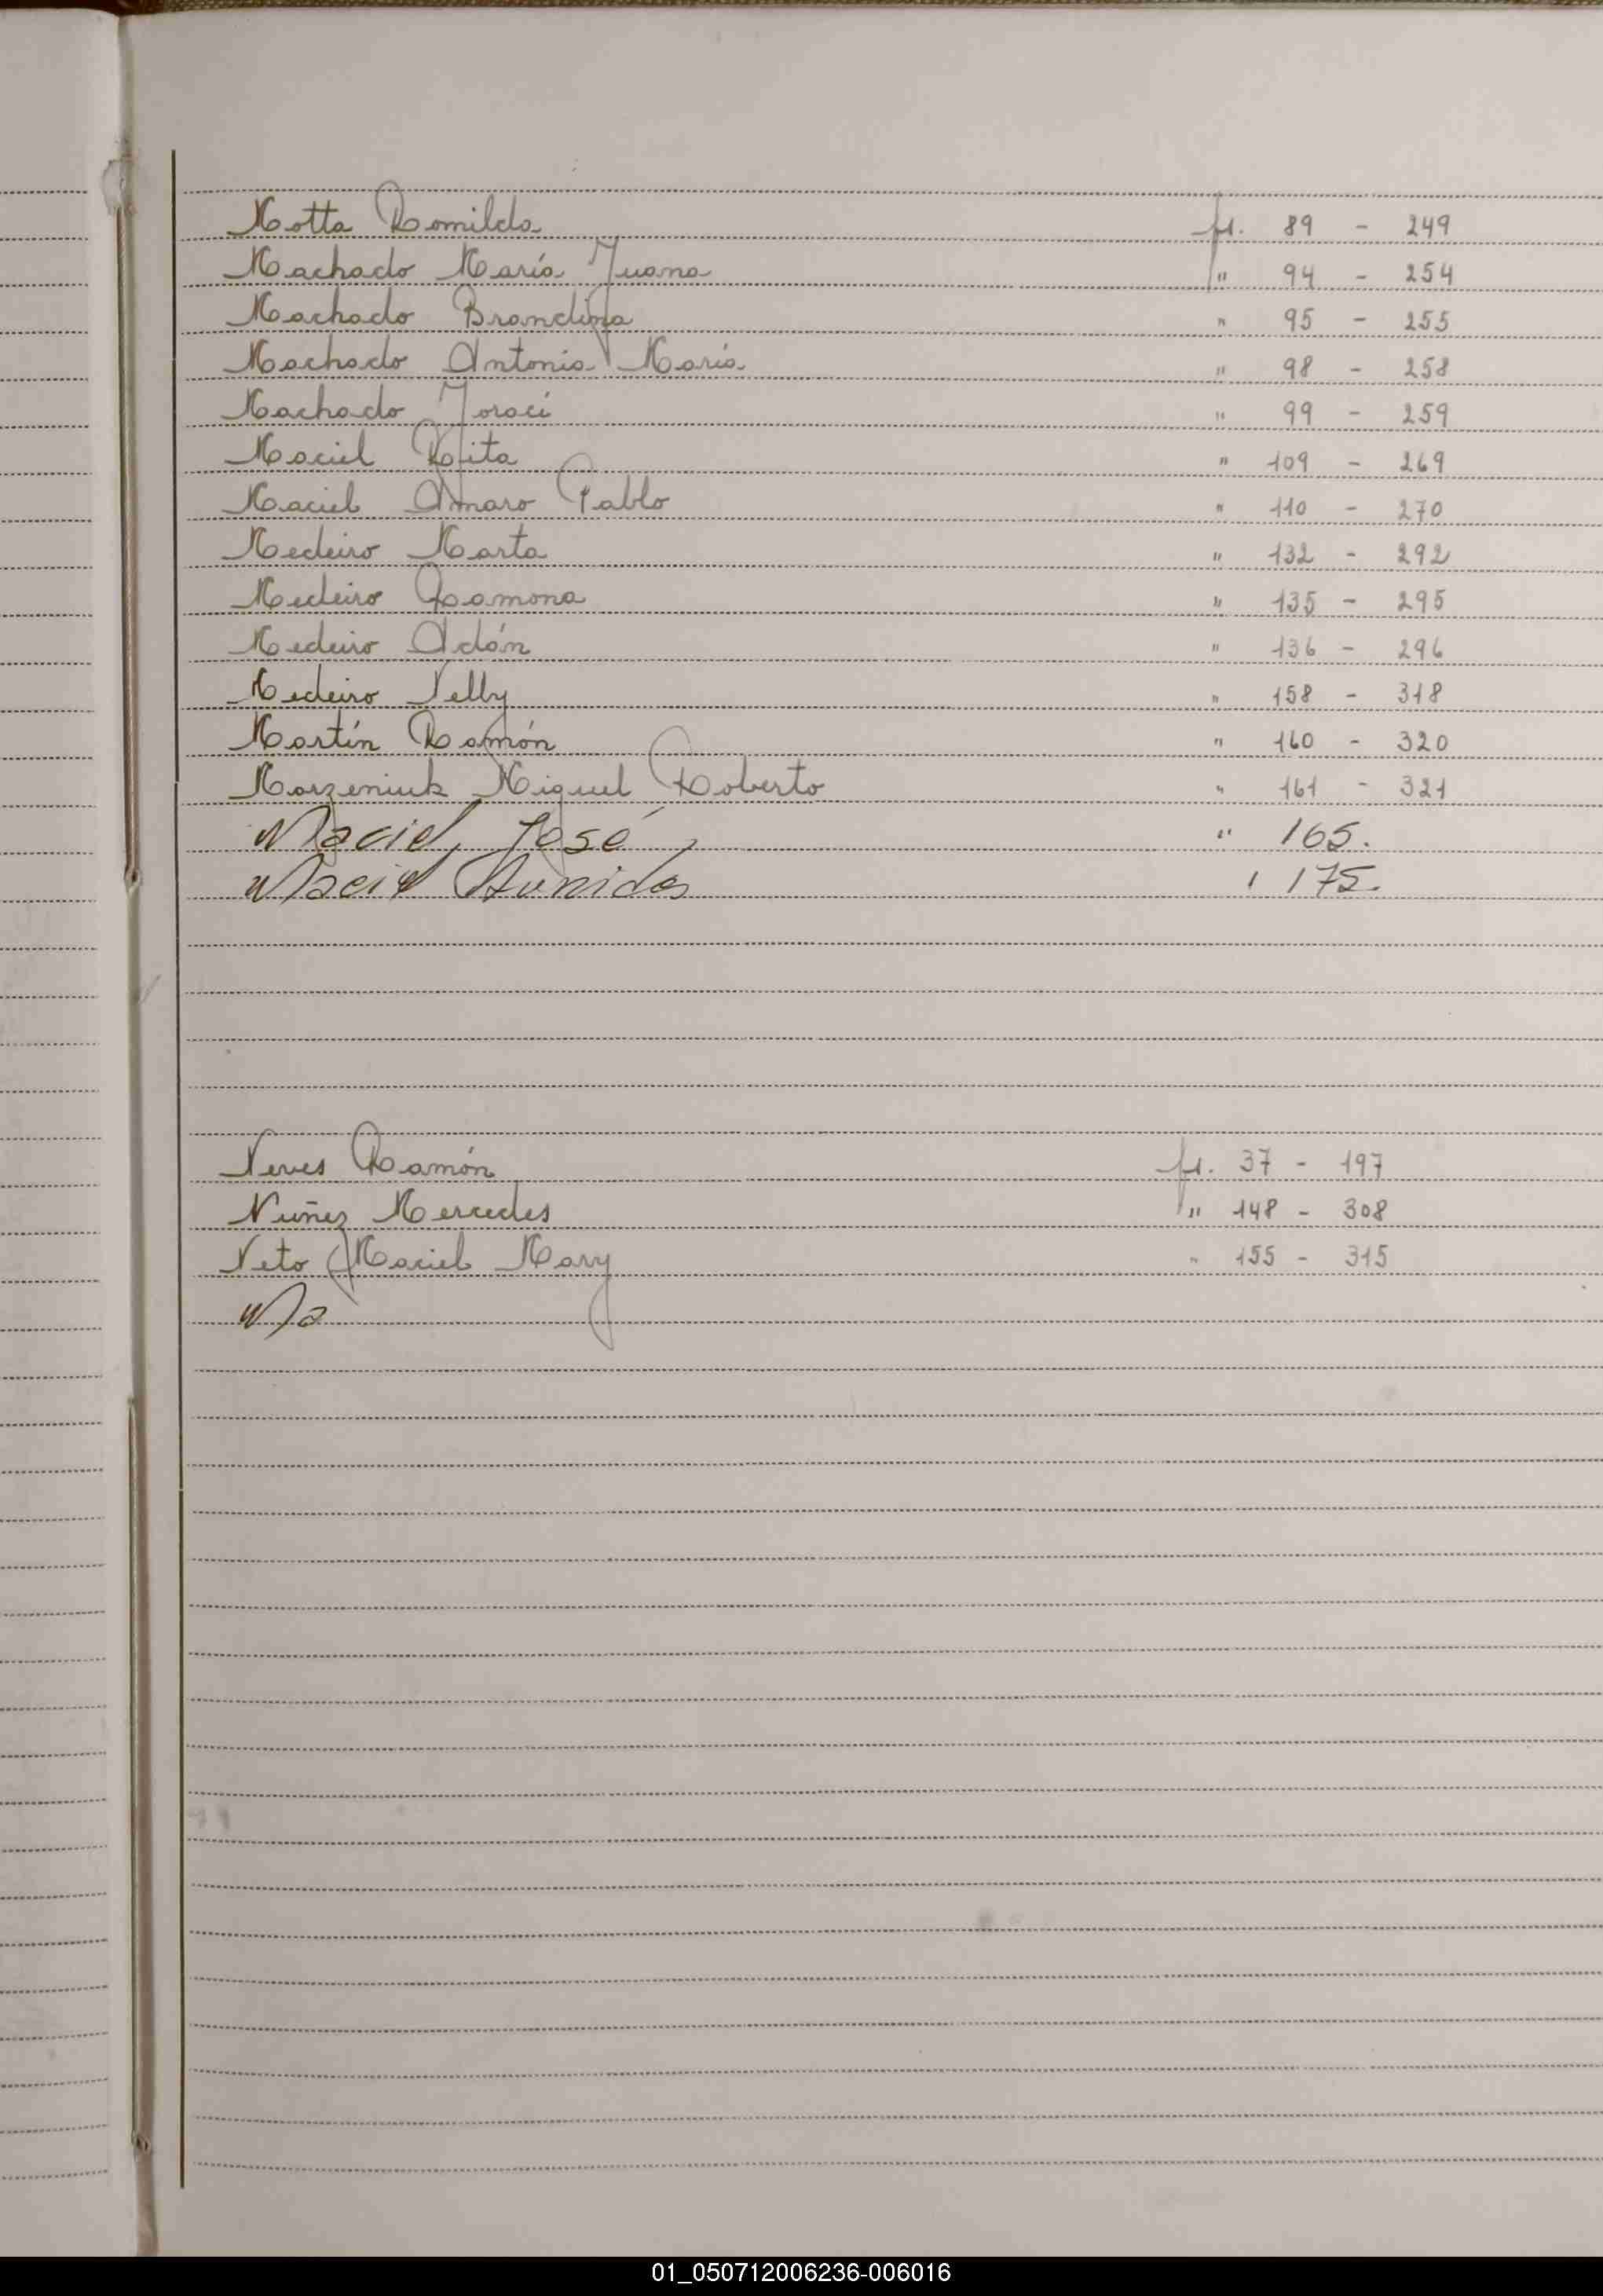 Motta Romilda fl. 89 - 249
Machado María Juana " 94 - 254
Machado Brandina " 95 - 255
Machado Antonio María " 98 - 258
Machado Joraci " 99 - 259
Maciel Rita " 109 - 269
Maciel Amaro Pablo " 110 - 270
Medeiro Marta " 132 - 292
Medeiro Ramona " 135 - 295
Medeiro Adán " 136 - 296
Medeiro Nelly " 158 - 318
Martín Ramón " 160 - 320
Marzeniuk Miguel Roberto " 161 - 321
Maciel, José " 165.
Maciel 175.
Neves Ramón fl. 37 - 197
Nuñez Mercedes " 148 - 308
Neto Maciel Mary " 155 - 315
Ma
01_050712006236-006016